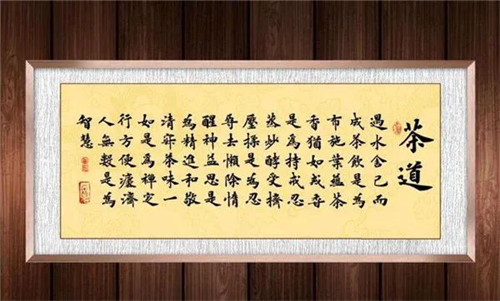 茶道
遇水舍己而
成茶飲是為
布施葉蘊茶
香猶如戒香
是為持戒忍
蒸炒酵受擠
壓揉是為忍
辱去懶除惰
醒神益思是
為精進和敬
清寂茶味一
如是為禪定
行方便濟
人無數是為
智慧